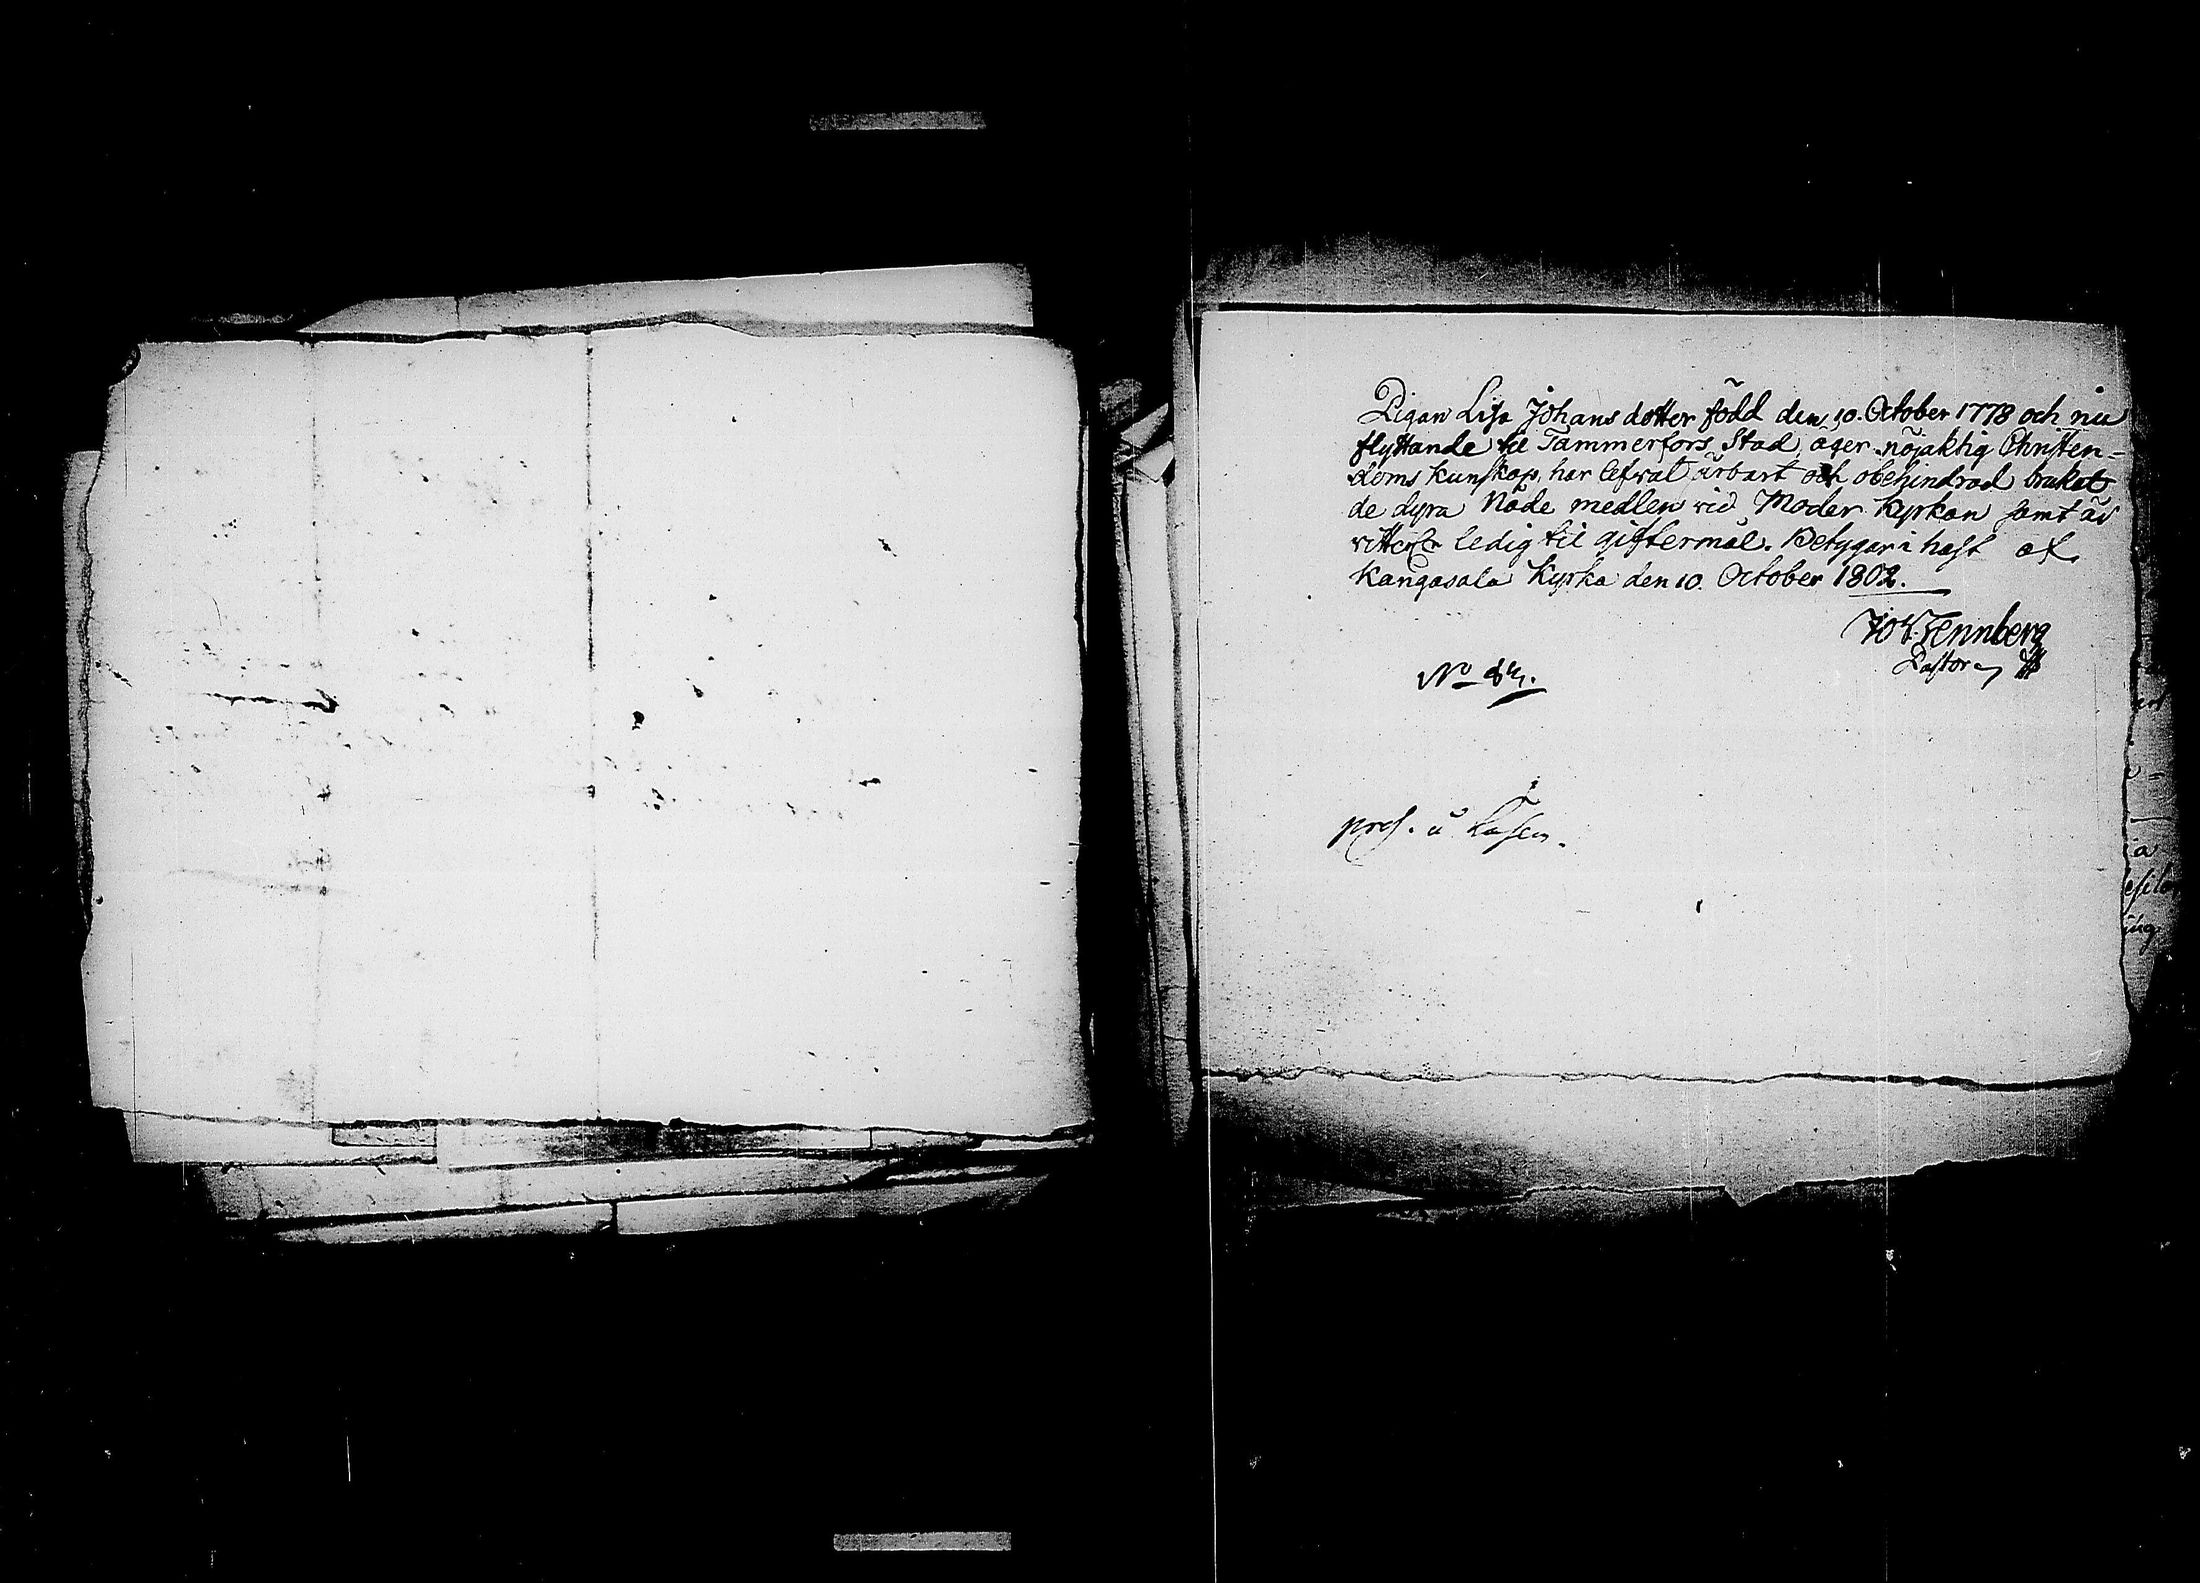 Pigan Lisa Johans dotter född den 10. October 1778 och nu
flyttande til Tammerfors Stad, äger nöjaktig Christen=
doms kunskap, har lefvat ärbart och obehindrad brukat
de dyra Nåde medlen vid Moder Kyrkan samt är
vitterl. ledig til giftermål. Betygar i hast af
Kangasala Kyrka den 10. October 1802.
Tennberg
Pastor
No 84.